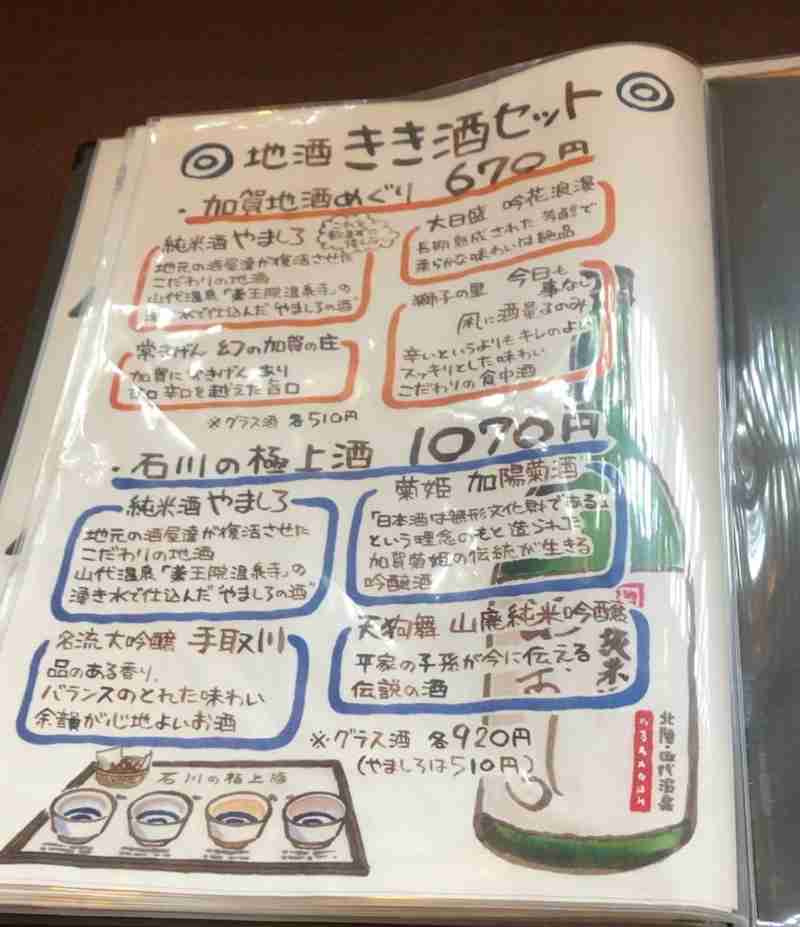 地酒 きき酒セット
・加賀地酒めぐり 670円
純米酒 やましろ
地元の酒屋達が復活させた
こだわりの地酒
山代温泉「薬王院温泉寺」の
湧き水で仕込んだ やましろの酒"
大日盛 吟花浪漫
長期熟成された 芳醇で
柔らかな味わいは絶品
常きげん 幻の加賀の庄
加賀に 常きげん あり
甘口 辛口を越えた旨口
獅子の里 今日も
事なし
風に酒量るのみ
辛いというよりもキレのよい
スッキリとした味わい
こだわりの食中酒
※グラス酒 各510円
・石川の極上酒 1070円
純米酒 やましろ
地元の酒屋達が復活させた
こだわりの地酒
山代温泉「薬王院温泉寺」の
湧き水で仕込んだ やましろの酒"
菊姫 加陽菊酒
「日本酒は無形文化財である」
という理念のもと造られた
加賀菊姫の伝統が生きる
吟醸酒
名流大吟醸 手取川
品のある香り、
バランスのとれた味わい
余韻が心地よいお酒
天狗舞 山廃純米吟醸
平家の子孫が今に伝える
伝説の酒
※グラス酒 各920円
(やましろは510円)
石川の極上酒
純米